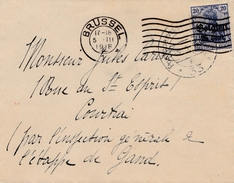 BRÜSSEL
17-18
5 III
1918
20 20
Monsieur Jules
1 Rue du St Esprit
Courtrai
(par l'inspection générale de
l'étape de Gand.